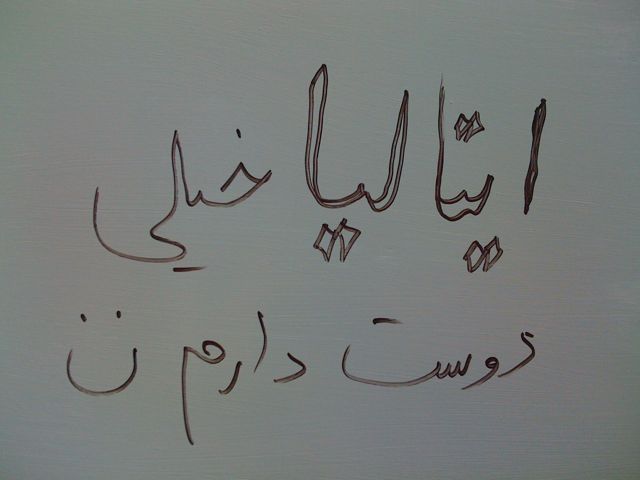 ایتالیا خیلی
دوست دارم ن